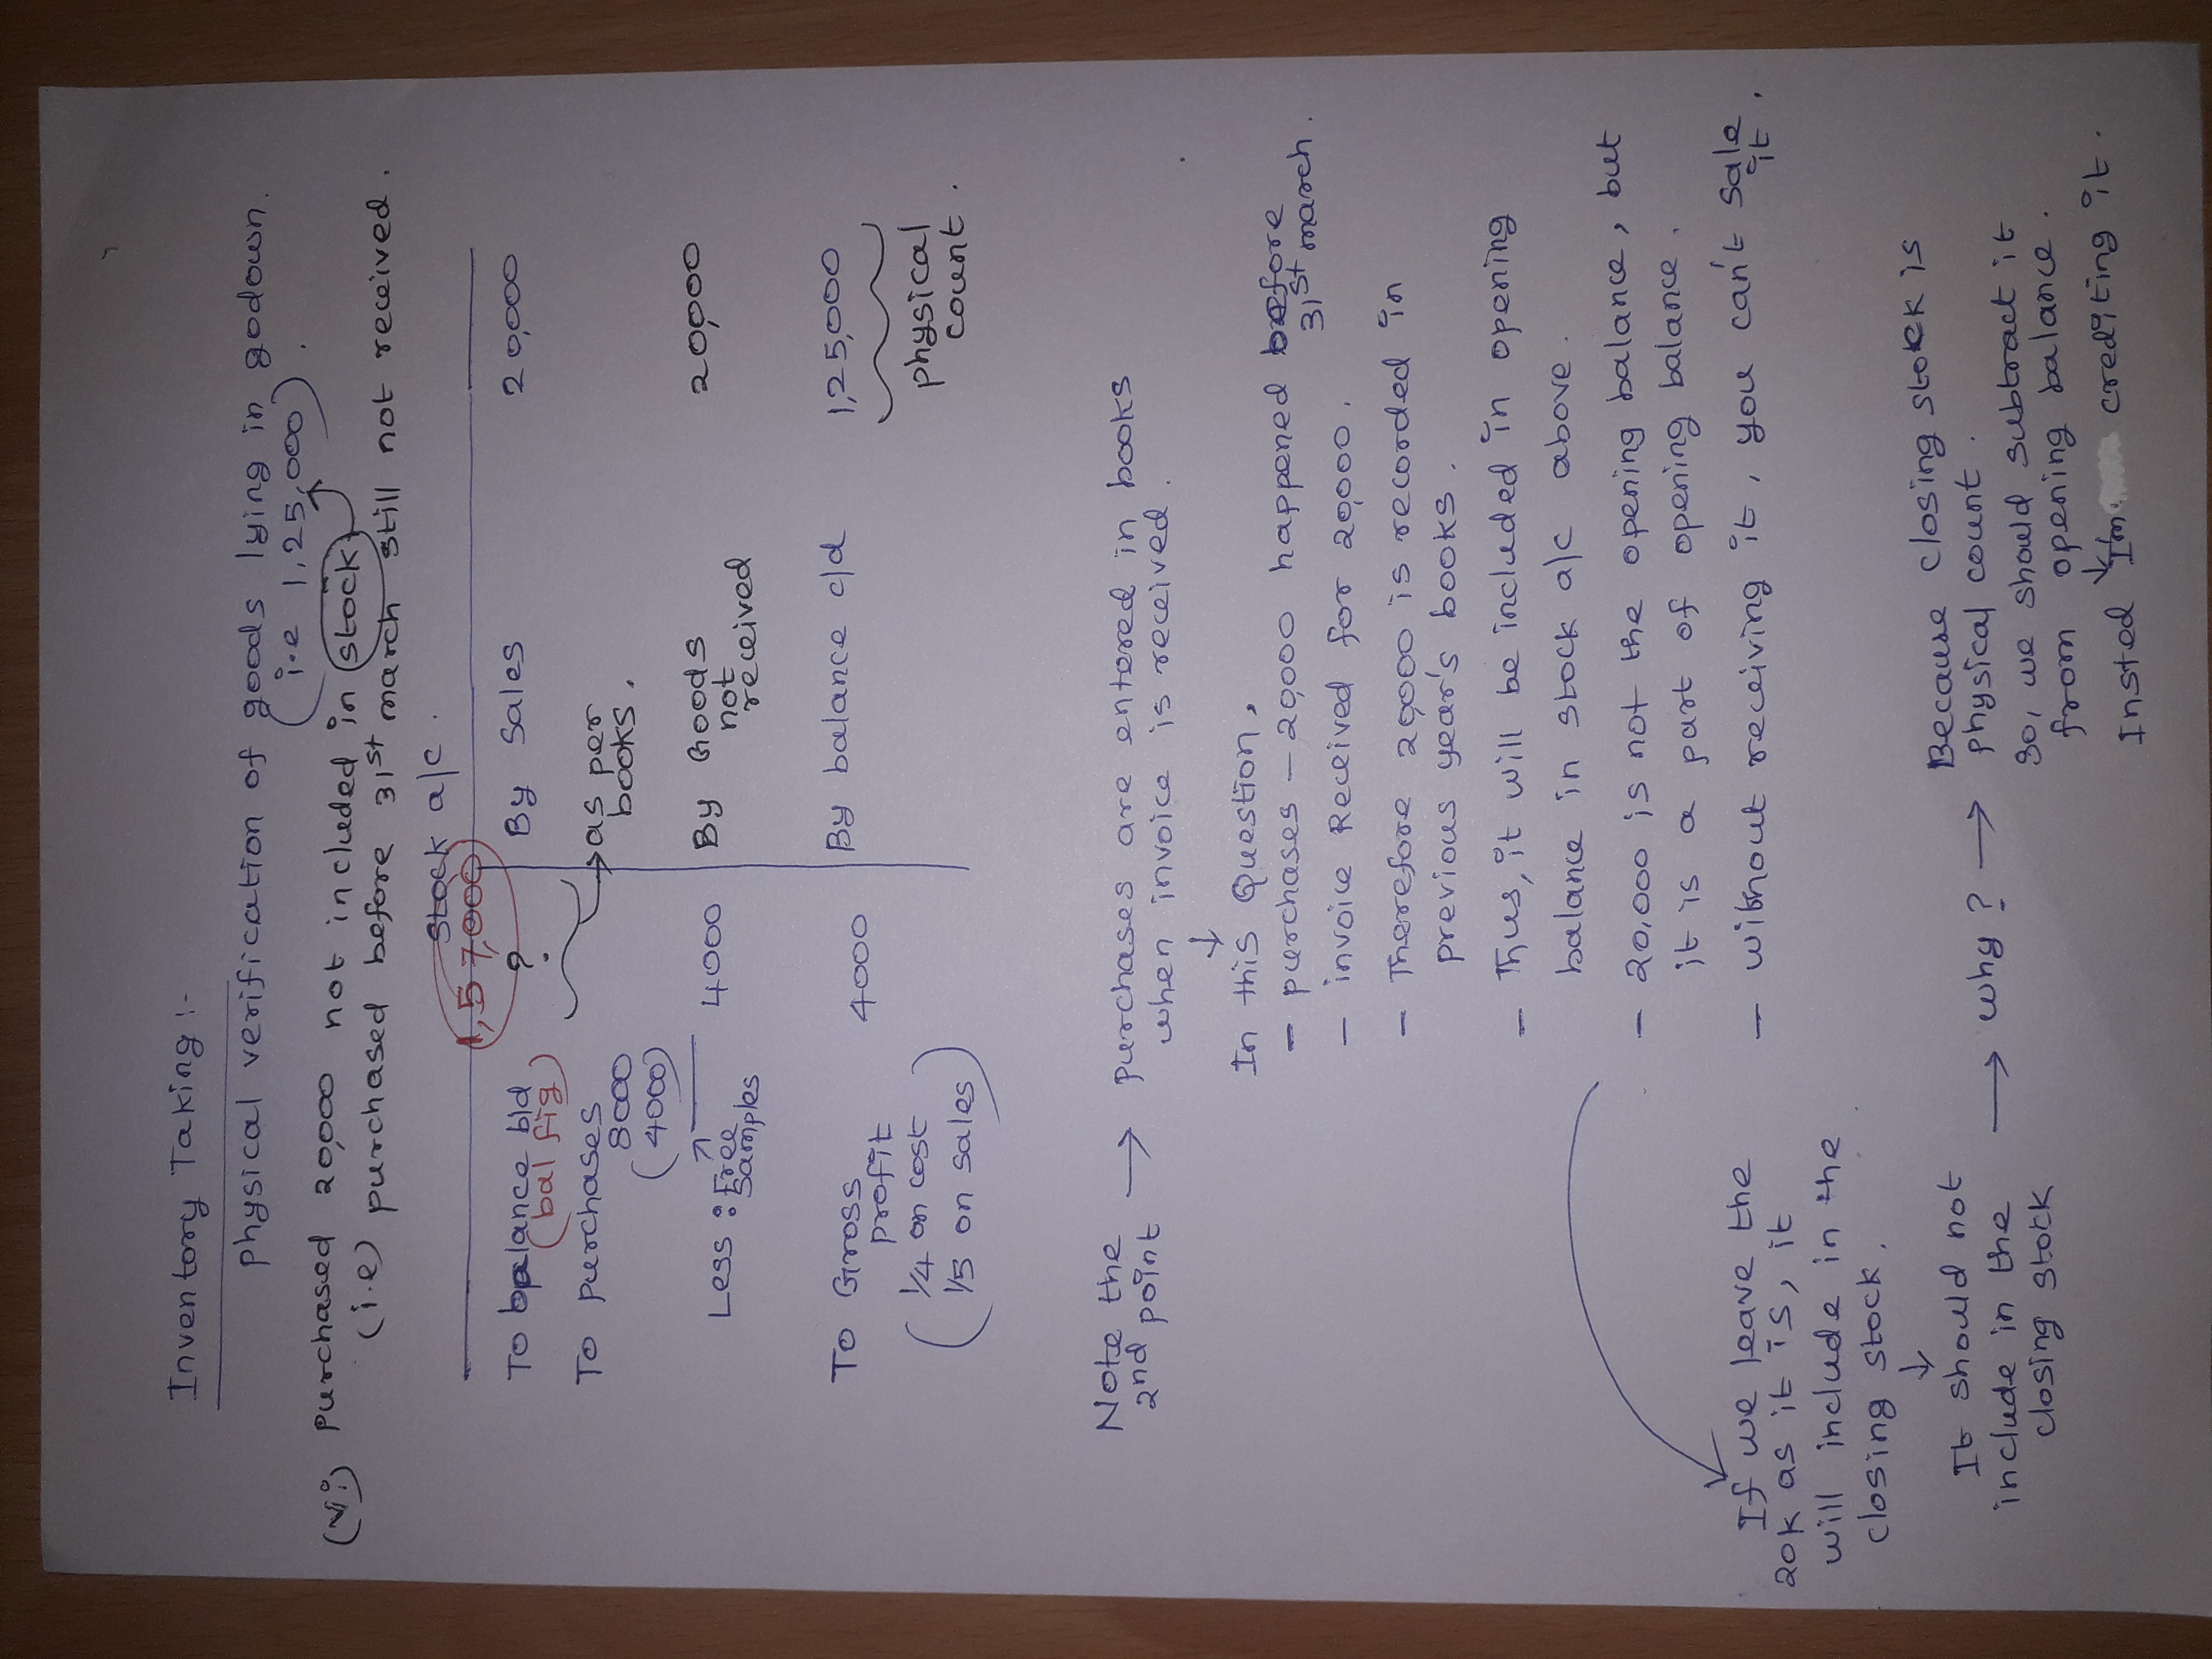 Inventory Taking :-
Physical verification of goods lying in godown.
(i.e 1,25,000).
(vi) Purchased 20,000 not included in stock
(i.e) purchased before 31st march still not received.
Stock a/c.
To balance b/d 1,57,000 By Sales 20,000
(bal fig) ?
To purchases as per
8000 books.
(4000)
Less : Free 4000 By Goods 20,000
samples not
received
To Gross 4000 By balance c/d 1,25,000
profit
1/4 on cost physical
(1/5 on sales) count.
Note the → Purchases are entered in books
2nd point when invoice is received.
In this Question,
- purchases - 20,000 happened before
31st march.
- invoice Received for 20,000.
- Therefore 20,000 is recorded in
previous year's books.
- Thus, it will be included in opening
balance in stock a/c above.
- 20,000 is not the opening balance, but
it is a part of opening balance.
- without receiving it, you can't sale
it.
If we leave the
20k as it is, it
will include in the
closing stock.
It should not
include in the
closing stock
→ why? → Because closing stock is
physical count.
So, we should subtract it
from opening balance.
Insted Im crediting it.